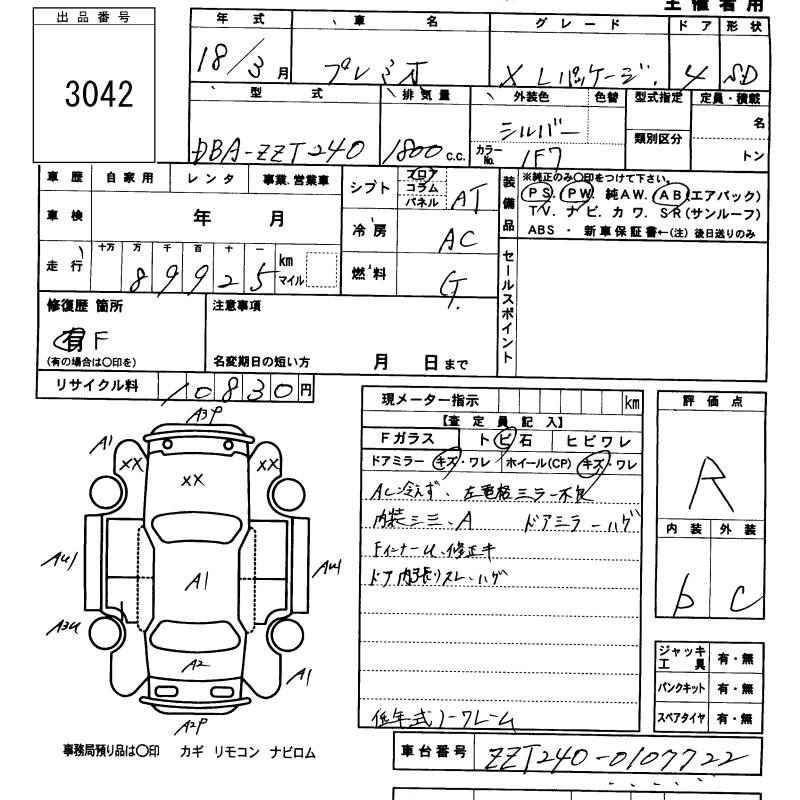 主催者用
出品番号
3042
年式 車名 グレード ドア 形状
18/3月 プレミオ X Lパッケージ 4 SD
型式 排気量 外装色 色替 型式指定 定員・積載
DBA-ZZT240 1800 c.c. シルバー 類別区分 名
カラーNo. 1F7 トン
車歴 自家用 レンタ 事業.営業車
車検 年 月
走行 十万 万 千 百 十 一 km マイル
89925
シフト フロア コラム パネル AT
冷房 AC
燃料 G.
装備品
※純正のみ〇印をつけて下さい。
PS. PW. 純AW. AB(エアバック)
TV. ナビ. カワ. SR(サンルーフ)
ABS ・ 新車保証書←(注) 後日送りのみ
セールスポイント
修復歴 箇所
有 F
(有の場合は〇印を)
注意事項
名変期日の短い方 月 日まで
リサイクル料 10830円
現メーター指示 km
【査定員記入】
Fガラス トビ石 ヒビワレ
ドアミラー キズ・ワレ ホイール(CP) キズ・ワレ
AC冷えず、左電格ミラー不良
内装シミ、A ドアミラーハゲ
FインナーU、修正キ
ドア内張りスレ・ハゲ
低年式ノークレーム
評価点
R
内装 外装
b C
ジャッキ工具 有・無
パンクキット 有・無
スペアタイヤ 有・無
A3P
A1
XX XX XX
AU1 A1 AU1
A3U
A2 A1
A2P
事務局預り品は〇印 カギ リモコン ナビロム
車台番号 ZZT240-0107722